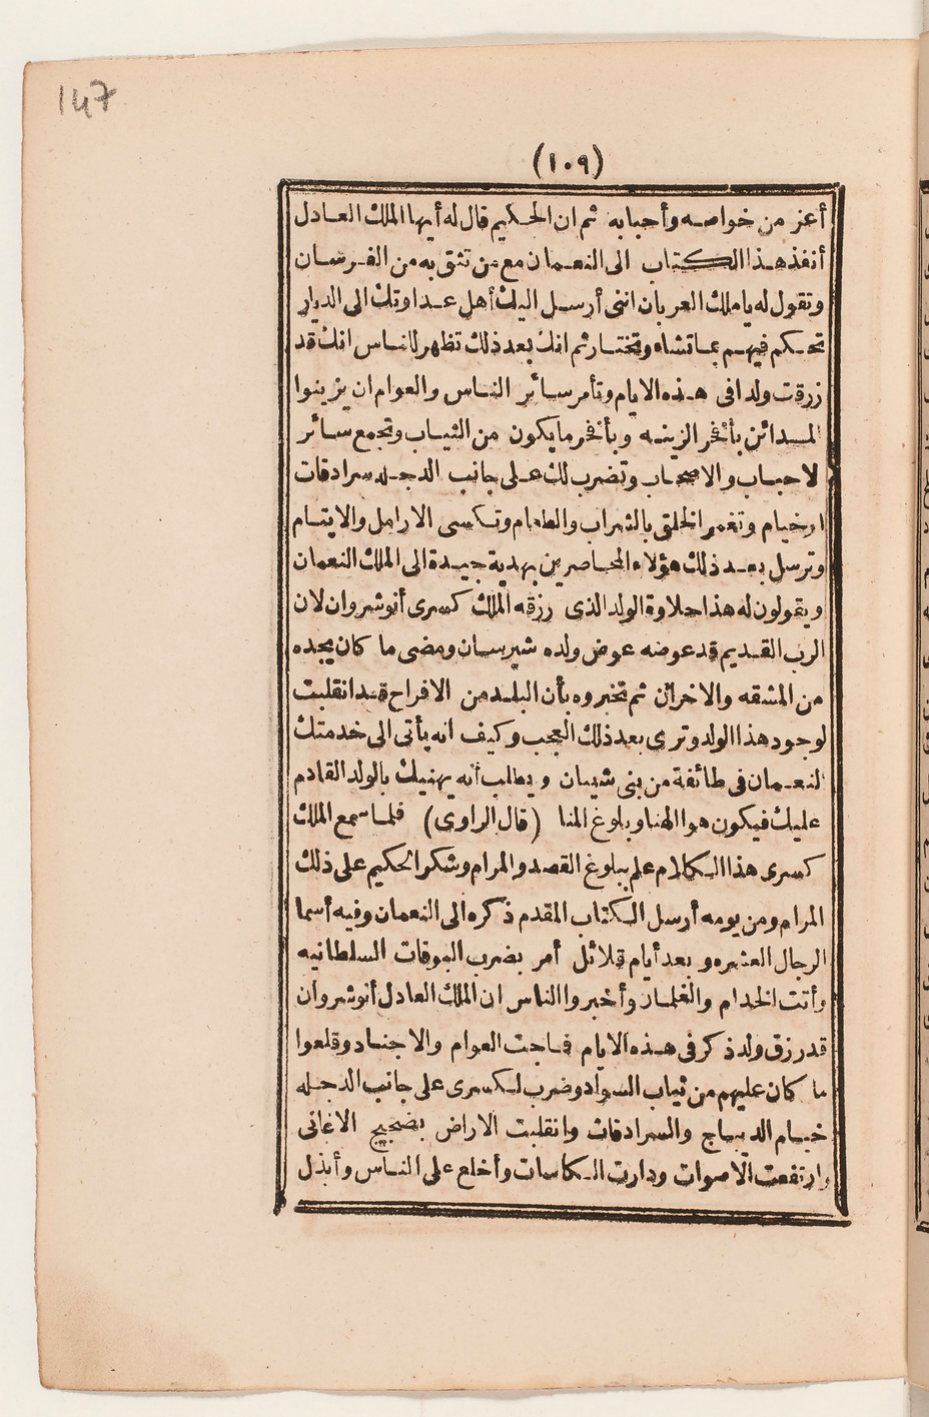 147
(١٠٩)
أعز من خواصه وأحبابه ثم ان الحكيم قال له أيها الملك العادل
أنفذ هذا الكتاب الى النعمان مع من تثق به من الفرسان
وتقول له يا ملك العربان اننى أرسل اليك أهل عداوتك الى الديار
تحكم فيهم بما تشاء وتختار ثم انك بعد ذلك تظهر للناس انك قد
زرقت ولدا فى هذه الايام وتأمر سائر الناس والعوام ان يزينوا
المدائن بأفخر الزينه وبأفخر ما يكون من الثياب وتجمع سائر
لاحباب والاصحاب وتضرب لك على جانب الدجله سرادقات
ارخيام وتغمر الخلق بالشراب والطعام وتكسى الارامل والايتام
وترسل بعد ذلك هؤلاء المحاصرين بهدية جيدة الى الملك النعمان
ويقولون له هذا حلاوة الولد الذى رزقه الملك كسرى أنوشروان لان
الرب القديم قد عوضه عوض ولده شيرسان ومضى ما كان يجده
من المشقه والاخران ثم تخبروه بأن البلد من الافراح قد انقلبت
لوجود هذا الولد وترى بعد ذلك العجب وكيف انه يأتى الى خدمتك
لنعمان فى طائفة من بنى شيبان ويطلب أنه يهنيك بالولد القادم
عليك فيكون هو الهنا وبلوغ المنا (قال الراوى) فلما سمع الملك
كسرى هذا الكلام علم ببلوغ القصد والمرام وشكر الحكيم على ذلك
المرام ومن يومه أرسل الكتاب المقدم ذكره الى النعمان وفيه أسما
الرجال العشره وبعد أيام قلائل أمر بضرب البوقات السلطانيه
وأتت الخدام والغلمان وأخبروا الناس ان الملك العادل أنوشروان
قد رزق ولد ذكر فى هذه الايام فاجت العوام والاجناد وقلعوا
ما كان عليهم من ثياب السواد وضرب لكسرى على جانب الدجله
خيام الديباج والسرادقات وانقلبت الاراض بضجيج الاغانى
وارتفعت الاصوات ودارت الكاسات وأخلع على الناس وأبذل